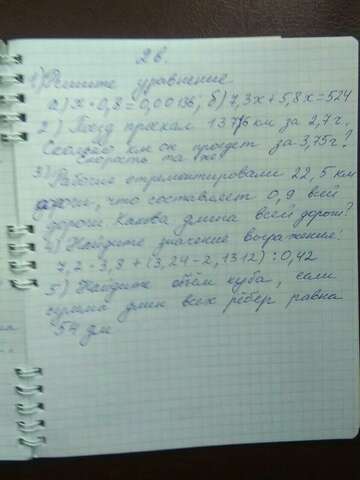 2 в.
1) Решите уравнение
а) x • 0,8 = 0,00136; б) 7,3x + 5,8x = 524
2) Поезд проехал 137,6 км за 2,7 ч.
Сколько км он проедет за 3,75 ч?
Скорость та же
3) Рабочие отремонтировали 22,5 км
дороги, что составляет 0,9 всей
дороги. Какова длина всей дороги?
4) Найдите значение выражения:
7,2 - 3,3 + (3,24 - 2,1312) : 0,42
5) Найдите объём куба, если
сумма длин всех рёбер равна
54 дм